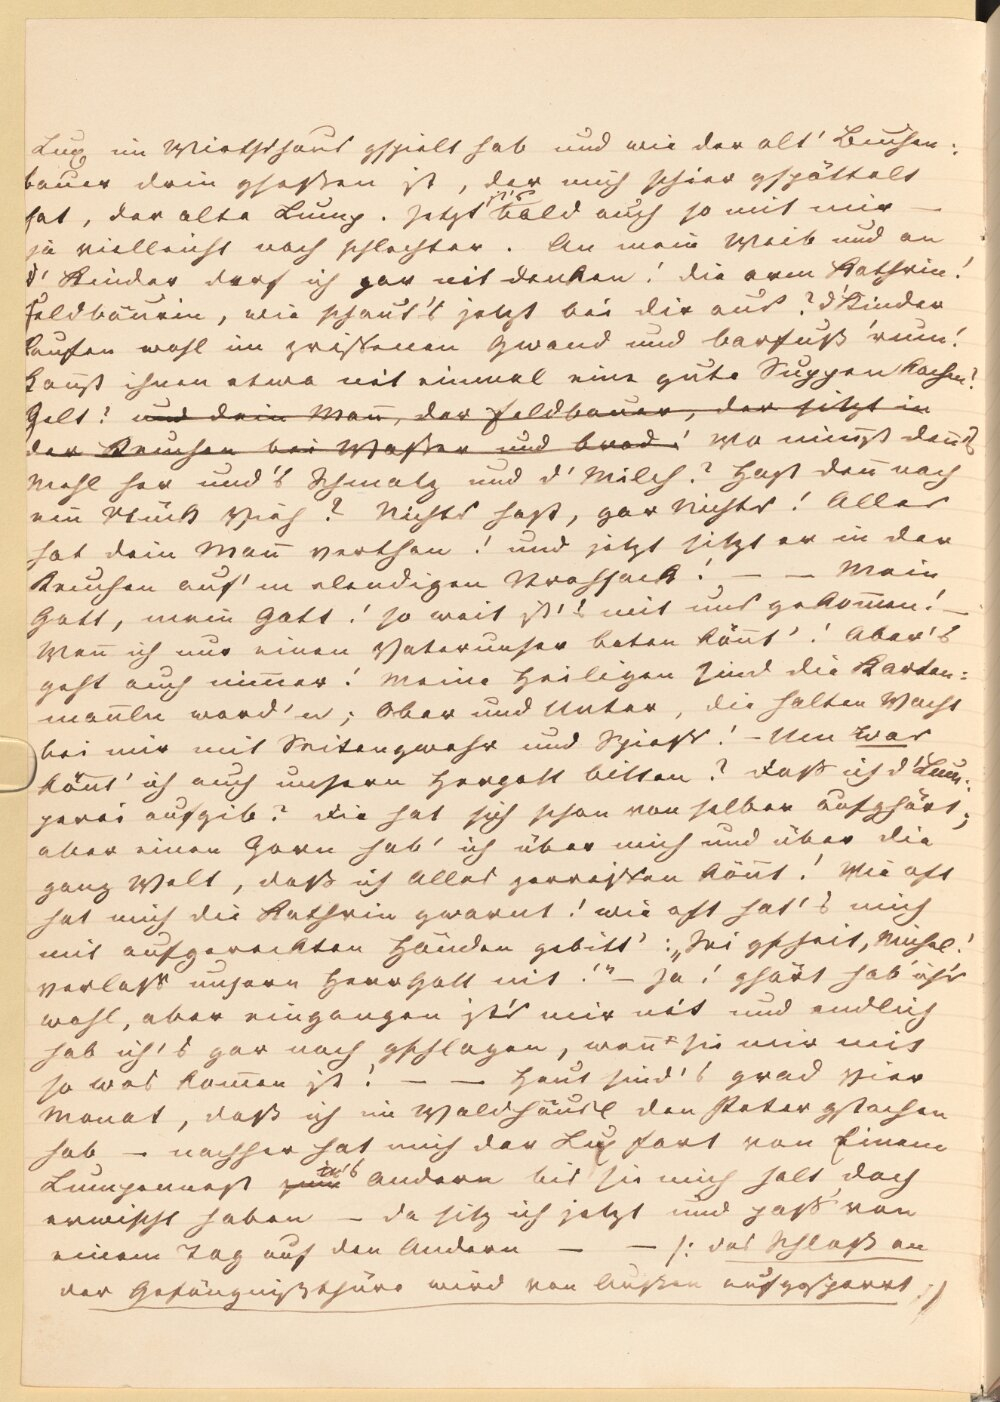 Lux im Wirthshaus gspielt hab und wie der alt' Buchen-
bauer drin gsessen ist, der mich schier gspöttelt
hat, der alte Lump. Jetzt ist's bald auch so mit mir —
ja vielleicht noch schlechter. An mein Weib und an
d' Kinder darf ich gar nit denken! die arm Kathrin!
Feldbäurin, wie schaut's jetzt bei dir aus? d'Kinder
laufen wohl im zrissenen Gwand und barfuß 'rum!
Kan̄st ihnen etwa nit einmal eine gute Suppen kochen?
Gelt! und dein Man̄, der Feldbauer, der sitzt in
der Keuchen bei Wasser und Brod! Wo nim̄st den̄'s
Mehl her und's Schmalz und d' Milch? Hast den̄ noch
ein Stück Vieh? Nichts hast, gar Nichts! Alles
hat dein Man̄ verthan! und jetzt sitzt er in der
Keuchen auf'm elendigen Strohsack! — — Mein
Gott, mein Gott! so weit ist's mit uns gekom̄en! —
Wen̄ ich nur einen Vaterunser beten kön̄t'! Aber's
geht auch nim̄er! Meine Heiligen sind die Karten-
man̄ln word'n; Ober und Unter, die halten Wacht
bei mir mit Seitengwehr und Spieß! — Um was
kön̄t' ich auch unsern Hergott bitten? Daß ich d'Lum-
perei aufgib? Die hat sich schon von selber aufghört;
aber einen Zorn hab' ich über mich und über die
ganz Welt, daß ich Alles zerreissen kön̄t! Wie oft
hat mich die Kathrin gwarnt! wie oft hat's mich
mit aufgereckten Händen gebitt': „Sei gscheit, Michel!
verlaß unsern Herrgott nit!" — Ja! ghört hab' ich's
wohl, aber eingangen ist's mir nit und endlich
hab ich's gar noch gschlagen, wen̄ sie mir mit
so was kom̄en ist! — — Heut sind's grad vier
Monat, daß ich im Waldhäusl den Peter gstochen
hab — nachher hat mich der Lux fort von Einem
Lumpennest zum in's Andere bis sie mich halt doch
erwischt haben — da sitz ich jetzt und paß von
einem Tag auf den Andern — — /: das Schloß an
der Gefängnißthüre wird von Außen aufgesperrt :/